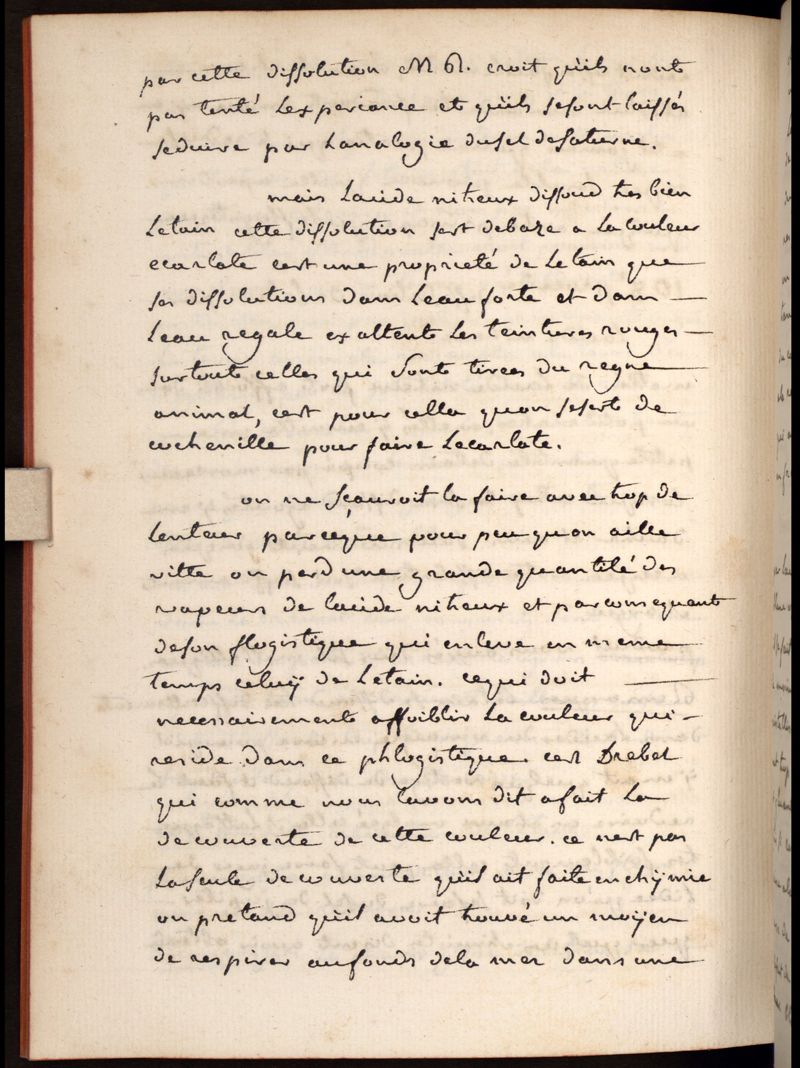 par cette dissolution M R. croit quils nont
pas tenté Lexperiance et quils sesont laissés
seduire par Lanalogie dusel desaturne.
mais Lacide nitreux dissoud tres bien
Letain cette dissolution sert debaze a La couleur
ecarlate cest une proprieté de Letain que
ses dissolutions dans Leau forte et dans
Leau regale exaltent Les teintures rouges
surtout celles qui sont tirées du regne
animal, cest pour cella quon sesert de
cochenille pour faire Lecarlate.
on ne sçauroit la faire avec trop de
Lenteur parceque pour peu quon aille
vitte on perd une grande quantité des
vapeurs de lacide nitreux et parconsequent
deson flogistique qui enleve en meme
temps celuÿ de Letain. cequi doit
necessairement affoiblir La couleur qui
reside dans ce phlogistique. cest Drebel
qui comme nous lavons dit afait La
decouverte de cette couleur. ce nest pas
La seule decouverte quil ait faite en chÿmie
on pretand quil avoit trouvé un moÿen
de respirer aufonds dela mer dans une